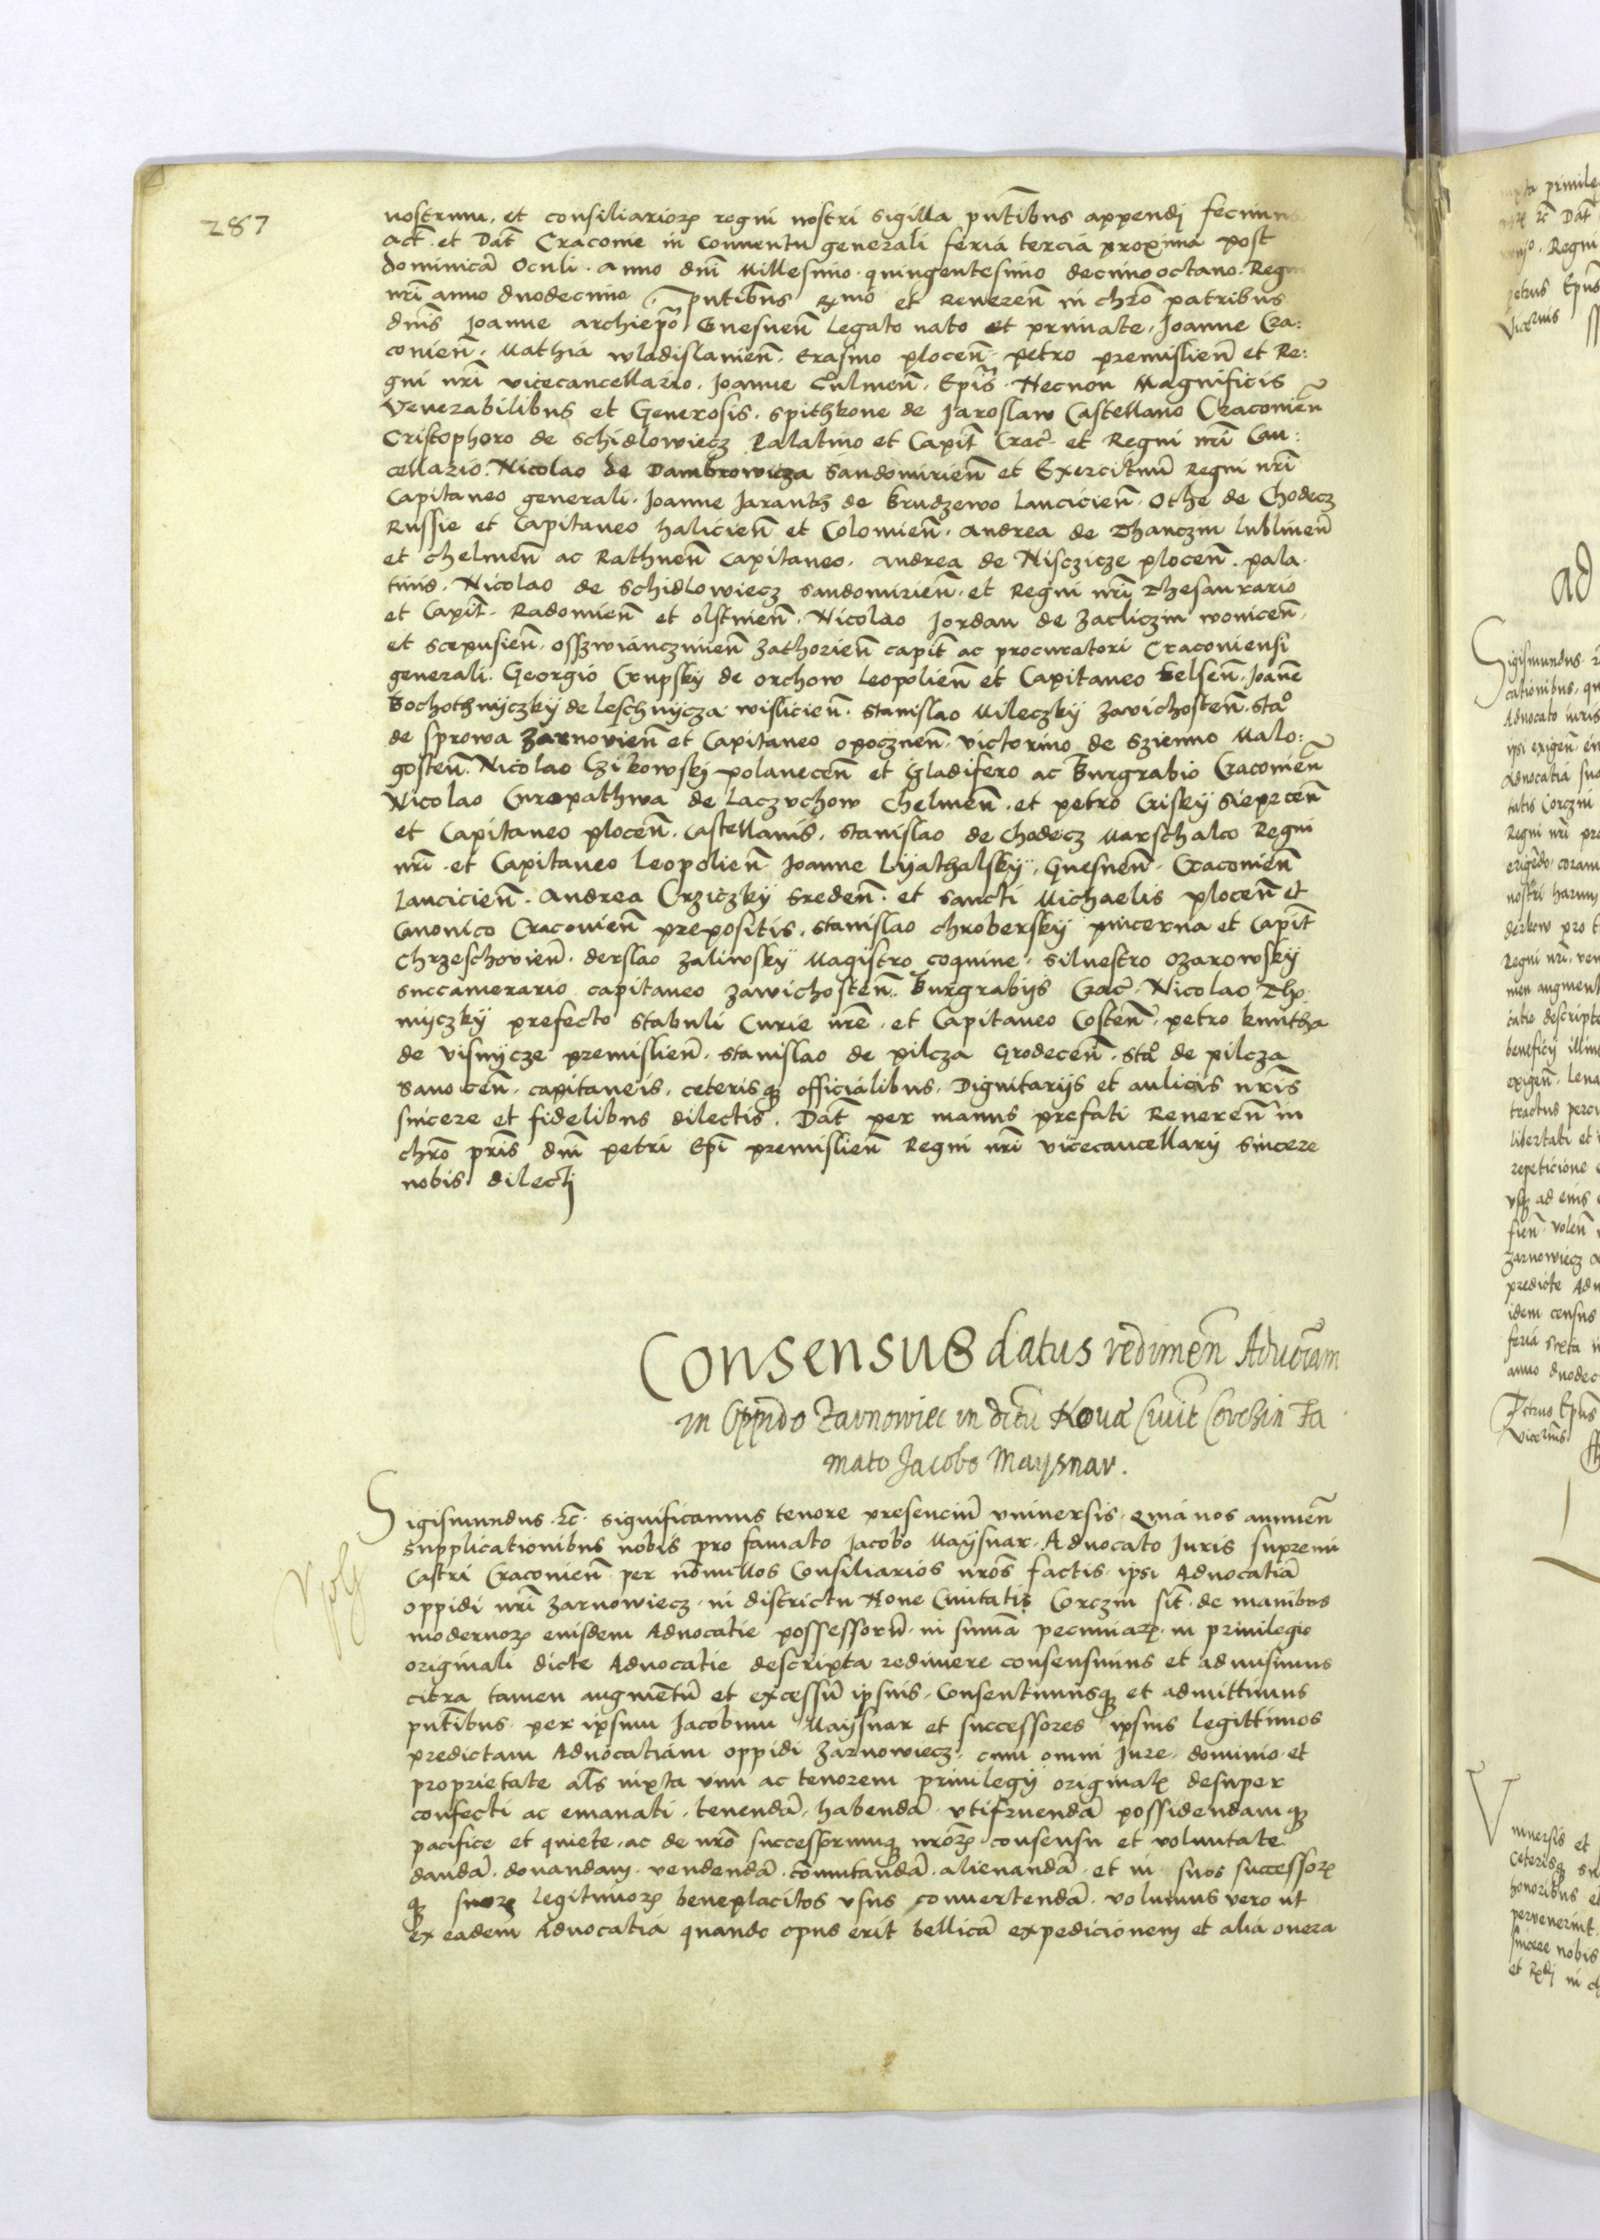 287
nostrum, et consiliarior regni nostri sigilla pntibus appendj fecimus
act et Dat Cracouie in conuentu generali feria tercia proxima post
dominica Oculi. anno dni Millesimo quingentesimo decimooctauo. Regni
nri anno duodecimo. pntibus Rmo et Reueren in chro patribus
dnis Joanne archiepo Gnesnen legato nato et primate, Joanne Cra:
couien. Mathia wladislauien. Erasmo plocen. petro premislien et Re:
gni nri vicecancellario. Joanne Culmen. Epis. Necnon Magnificis
Venerabilibus et Generosis. spithkone de Jaroslaw Castellano Cracouien
Cristophoro de Schidlowiecz Palatino et Capit Crac et Regni nri Can:
cellario. Nicolao de Dambrowicza Sandomirien et Exercituu Regni nri
Capitaneo generali. Joanne Jaranth de brudzewo lancicien. Othe de Chodecz
Russie et Capitaneo halicien et Colomien. Andrea de Thanczin lublinen
et chelmen ac Rathnen Capitaneo. Andrea de Nisczicze plocen. pala.
tinis. Nicolao de Schidlowiecz Sandomirien. et Regni nrj Thesaurario
et Capit. Radomien et olstinen. Nicolao Jordan de zacliczin woinicen.
et scepusien. osszwianczimien zathorien capit ac procuratori Cracouiensi
generali. Georgio Crupsky de orchow leopolien et Capitaneo belsen. Joane
Bochothnyczky de leschnycza wislicien. Stanislao Mileczky zavichosten. Sta
de sprowa zarnovien et Capitaneo opocznen. victorino de szienno Malo:
gosten. Nicolao Czikowskj polanecen et Gladifero ac Burgrabio Cracouien
Nicolao Curopathwa de laczvchow Chelmen. et petro Crisky sieprcen
et Capitaneo plocen. Castellanis. Stanislao de Chodecz Marschalco Regni
nri. et Capitaneo leopolien Joanne lyathalsky. Gnesnen. Cracouien
lancicien. Andrea Crziczky Sreden. et Sancti Michaelis plocen et
Canonico Cracouien prepositis. Stanislao chrobersky pincerna et Capit
chrzeschovien. derslao zaliwsky Magistro coquine. siluestro ozarowsky
succamerario capitaneo zawichosten. Burgrabijs Crac. Nicolao Tho
myczky prefecto stabuli Curie nre. et Capitaneo Costen. petro kmitha
de visnycze premislien. Stanislao de pilcza Grodecen. Sta de pilcza
Sanocen. capitaneis. ceterisq officialibus. Dignitarijs et aulicis nris
sincere et fidelibus dilectis. Dat per manus prefati Reueren in
chro pris dni petri Epi premislien Regni nri vicecancellarij sincere
nobis dilectj
Consensus datus redimen Aduociam
in Oppido Zarnowiec in dictu Nouae Ciuit Corczin Fa
mato Jacobo Maysnar.
Sigismundus. rc. significamus tenore presenciu vniuersis. Quia nos annuen
supplicationibus nobis pro famato Jacobo Maysnar. Aduocato Juris supremi
Castri Cracouien per nonullos Consiliarios nros factis. ipsi Aduocatia
oppidi nri zarnowiecz. in districtu Noue Ciuitatis Corczin sit. de manibus
modernor eiusdem Aduocatie possessoru. in suma pecuniar in priuilegio
originali dicte Aduocatie descripta redimere consensimus et admisimus
citra tamen augmentu et excessu ipsius. Consentimusq et admittimus
pntibus. per ipsum Jacobum Maysnar et successores ipsius legittimos
predictam Aduocatiam oppidi zarnowiecz. cum omni Jure. dominio. et
proprietate als iuxta vim ac tenorem priuilegij original desuper
confecti ac emanati. tenenda. habenda. vtifruenda possidendamq
pacifice et quiete. ac de nro successorumq nror consensu et voluntate
danda. donandam. vendenda. comutanda. alienanda. et in suos successor
q suor legitimor beneplacitos vsus conuertenda. volumus vero ut
ex eadem Aduocatia quando opus erit bellica expedicionem et alia onera